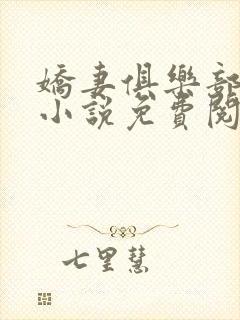 嬌妻俱樂部
小說免費閱
七里慧